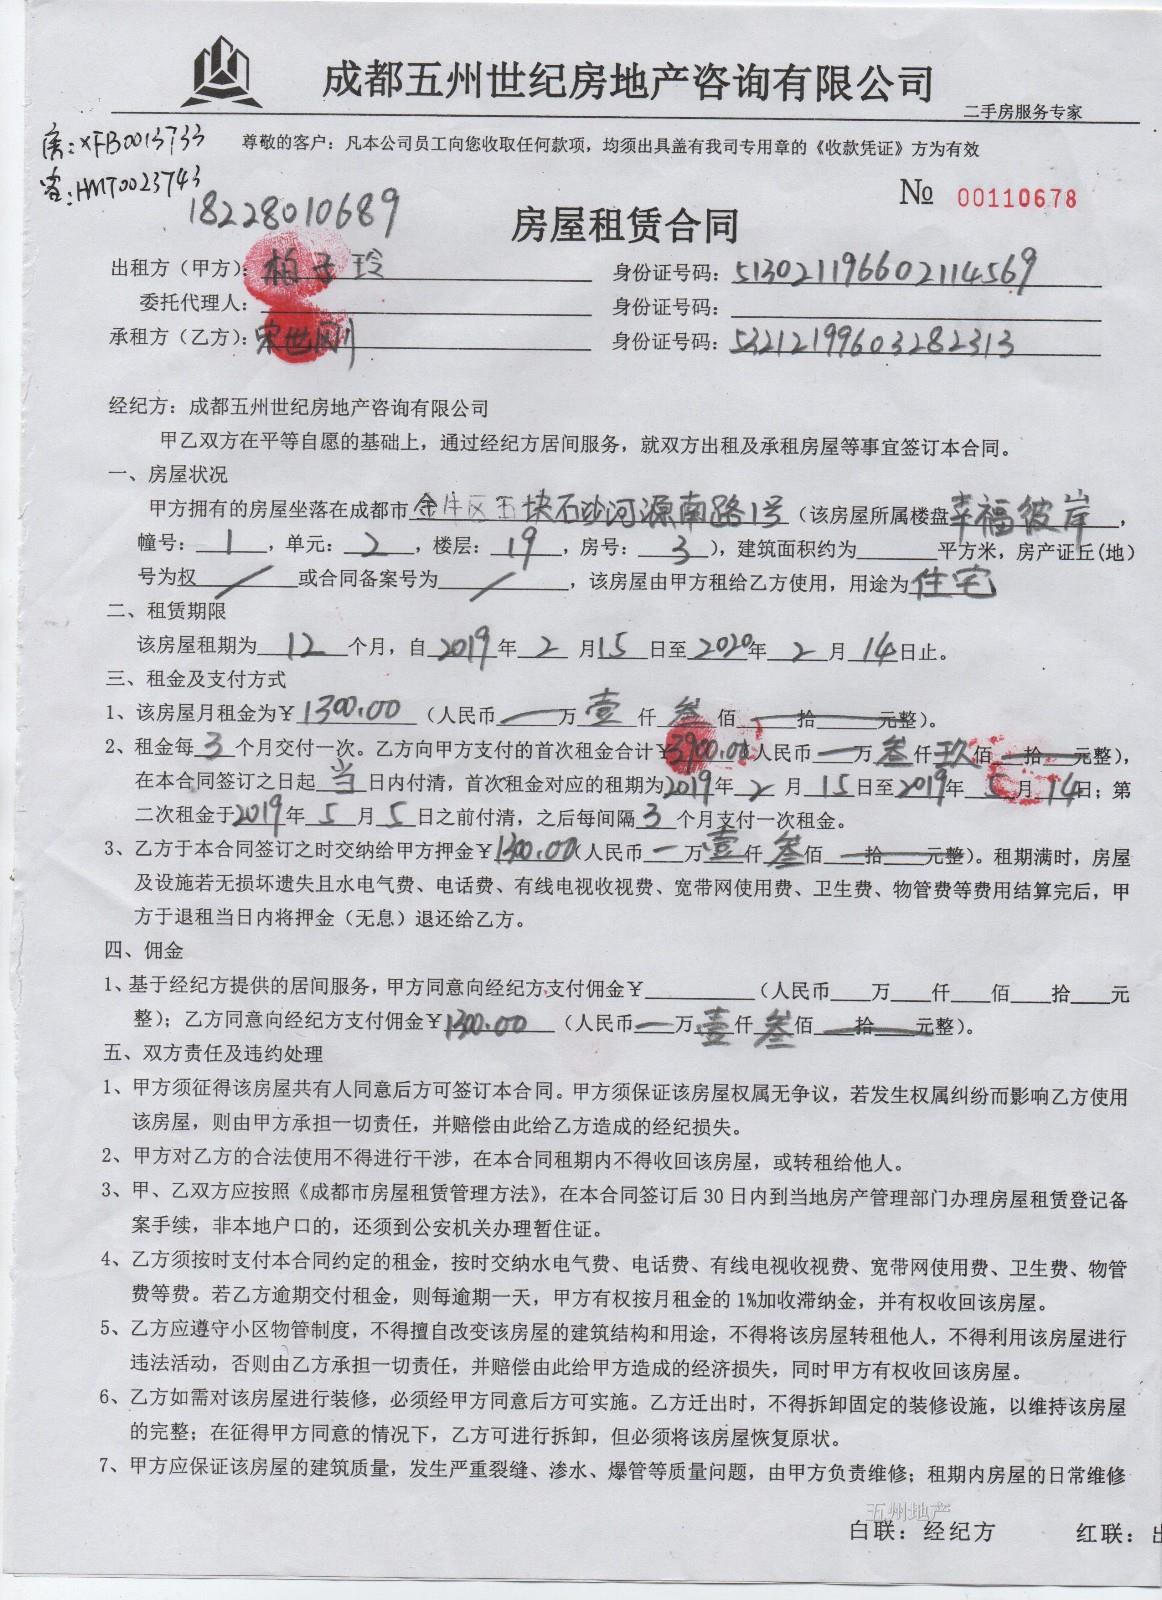 成都五州世纪房地产咨询有限公司
二手房服务专家
房:XFB0013733
尊敬的客户：凡本公司员工向您收取任何款项，均须出具盖有我司专用章的《收款凭证》方为有效
客:HMT0023743
18228010689
№ 00110678
房屋租赁合同
出租方（甲方）：柏子玲 身份证号码：513021196602114569
委托代理人： 身份证号码：
承租方（乙方）：宋世刚 身份证号码：532121199603282313
经纪方：成都五州世纪房地产咨询有限公司
甲乙双方在平等自愿的基础上，通过经纪方居间服务，就双方出租及承租房屋等事宜签订本合同。
一、房屋状况
甲方拥有的房屋坐落在成都市金牛区五块石沙河源南路1号（该房屋所属楼盘幸福彼岸，
幢号：1，单元：2，楼层：19，房号：3），建筑面积约为____平方米，房产证丘(地)
号为权/或合同备案号为/，该房屋由甲方租给乙方使用，用途为住宅
二、租赁期限
该房屋租期为12个月，自2019年2月15日至2020年2月14日止。
三、租金及支付方式
1、该房屋月租金为￥1300.00（人民币一万壹仟叁佰—拾—元整）。
2、租金每3个月交付一次。乙方向甲方支付的首次租金合计￥3900.00（人民币一万叁仟玖佰—拾—元整），
在本合同签订之日起当日内付清，首次租金对应的租期为2019年2月15日至2019年5月14日；第
二次租金于2019年5月5日之前付清，之后每间隔3个月支付一次租金。
3、乙方于本合同签订之时交纳给甲方押金￥1300.00（人民币一万壹仟叁佰—拾—元整）。租期满时，房屋
及设施若无损坏遗失且水电气费、电话费、有线电视收视费、宽带网使用费、卫生费、物管费等费用结算完后，甲
方于退租当日内将押金（无息）退还给乙方。
四、佣金
1、基于经纪方提供的居间服务，甲方同意向经纪方支付佣金￥____（人民币__万__仟__佰__拾__元
整）；乙方同意向经纪方支付佣金￥1300.00（人民币一万壹仟叁佰—拾—元整）。
五、双方责任及违约处理
1、甲方须征得该房屋共有人同意后方可签订本合同。甲方须保证该房屋权属无争议，若发生权属纠纷而影响乙方使用
该房屋，则由甲方承担一切责任，并赔偿由此给乙方造成的经纪损失。
2、甲方对乙方的合法使用不得进行干涉，在本合同租期内不得收回该房屋，或转租给他人。
3、甲、乙双方应按照《成都市房屋租赁管理方法》，在本合同签订后30日内到当地房产管理部门办理房屋租赁登记备
案手续，非本地户口的，还须到公安机关办理暂住证。
4、乙方须按时支付本合同约定的租金，按时交纳水电气费、电话费、有线电视收视费、宽带网使用费、卫生费、物管
费等费。若乙方逾期交付租金，则每逾期一天，甲方有权按月租金的1%加收滞纳金，并有权收回该房屋。
5、乙方应遵守小区物管制度，不得擅自改变该房屋的建筑结构和用途，不得将该房屋转租他人，不得利用该房屋进行
违法活动，否则由乙方承担一切责任，并赔偿由此给甲方造成的经济损失，同时甲方有权收回该房屋。
6、乙方如需对该房屋进行装修，必须经甲方同意后方可实施。乙方迁出时，不得拆卸固定的装修设施，以维持该房屋
的完整；在征得甲方同意的情况下，乙方可进行拆卸，但必须将该房屋恢复原状。
7、甲方应保证该房屋的建筑质量，发生严重裂缝、渗水、爆管等质量问题，由甲方负责维修；租期内房屋的日常维修
五州地产
白联：经纪方 红联：出